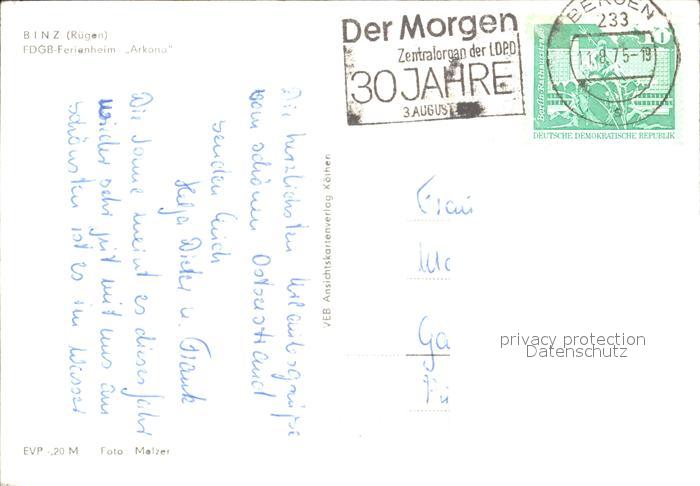 BINZ (Rügen)
FDGB-Ferienheim „Arkona"
Der Morgen
Zentralorgan der LDPD
30 JAHRE
3. AUGUST
BERGEN
233
11.8.75-19
a
Berlin, Rathausstraße
DEUTSCHE DEMOKRATISCHE REPUBLIK
Die herzlichsten Urlaubsgrüße
vom schönen Ostseestrand
senden Euch
Helga Dieter u. Frank
Die Sonne meint es dieses Jahr
wieder sehr gut mit uns am
schönsten ist es im Wasser
VEB Ansichtskartenverlag Köthen
Frau
privacy protection
Datenschutz
EVP -,20 M Foto: Melzer